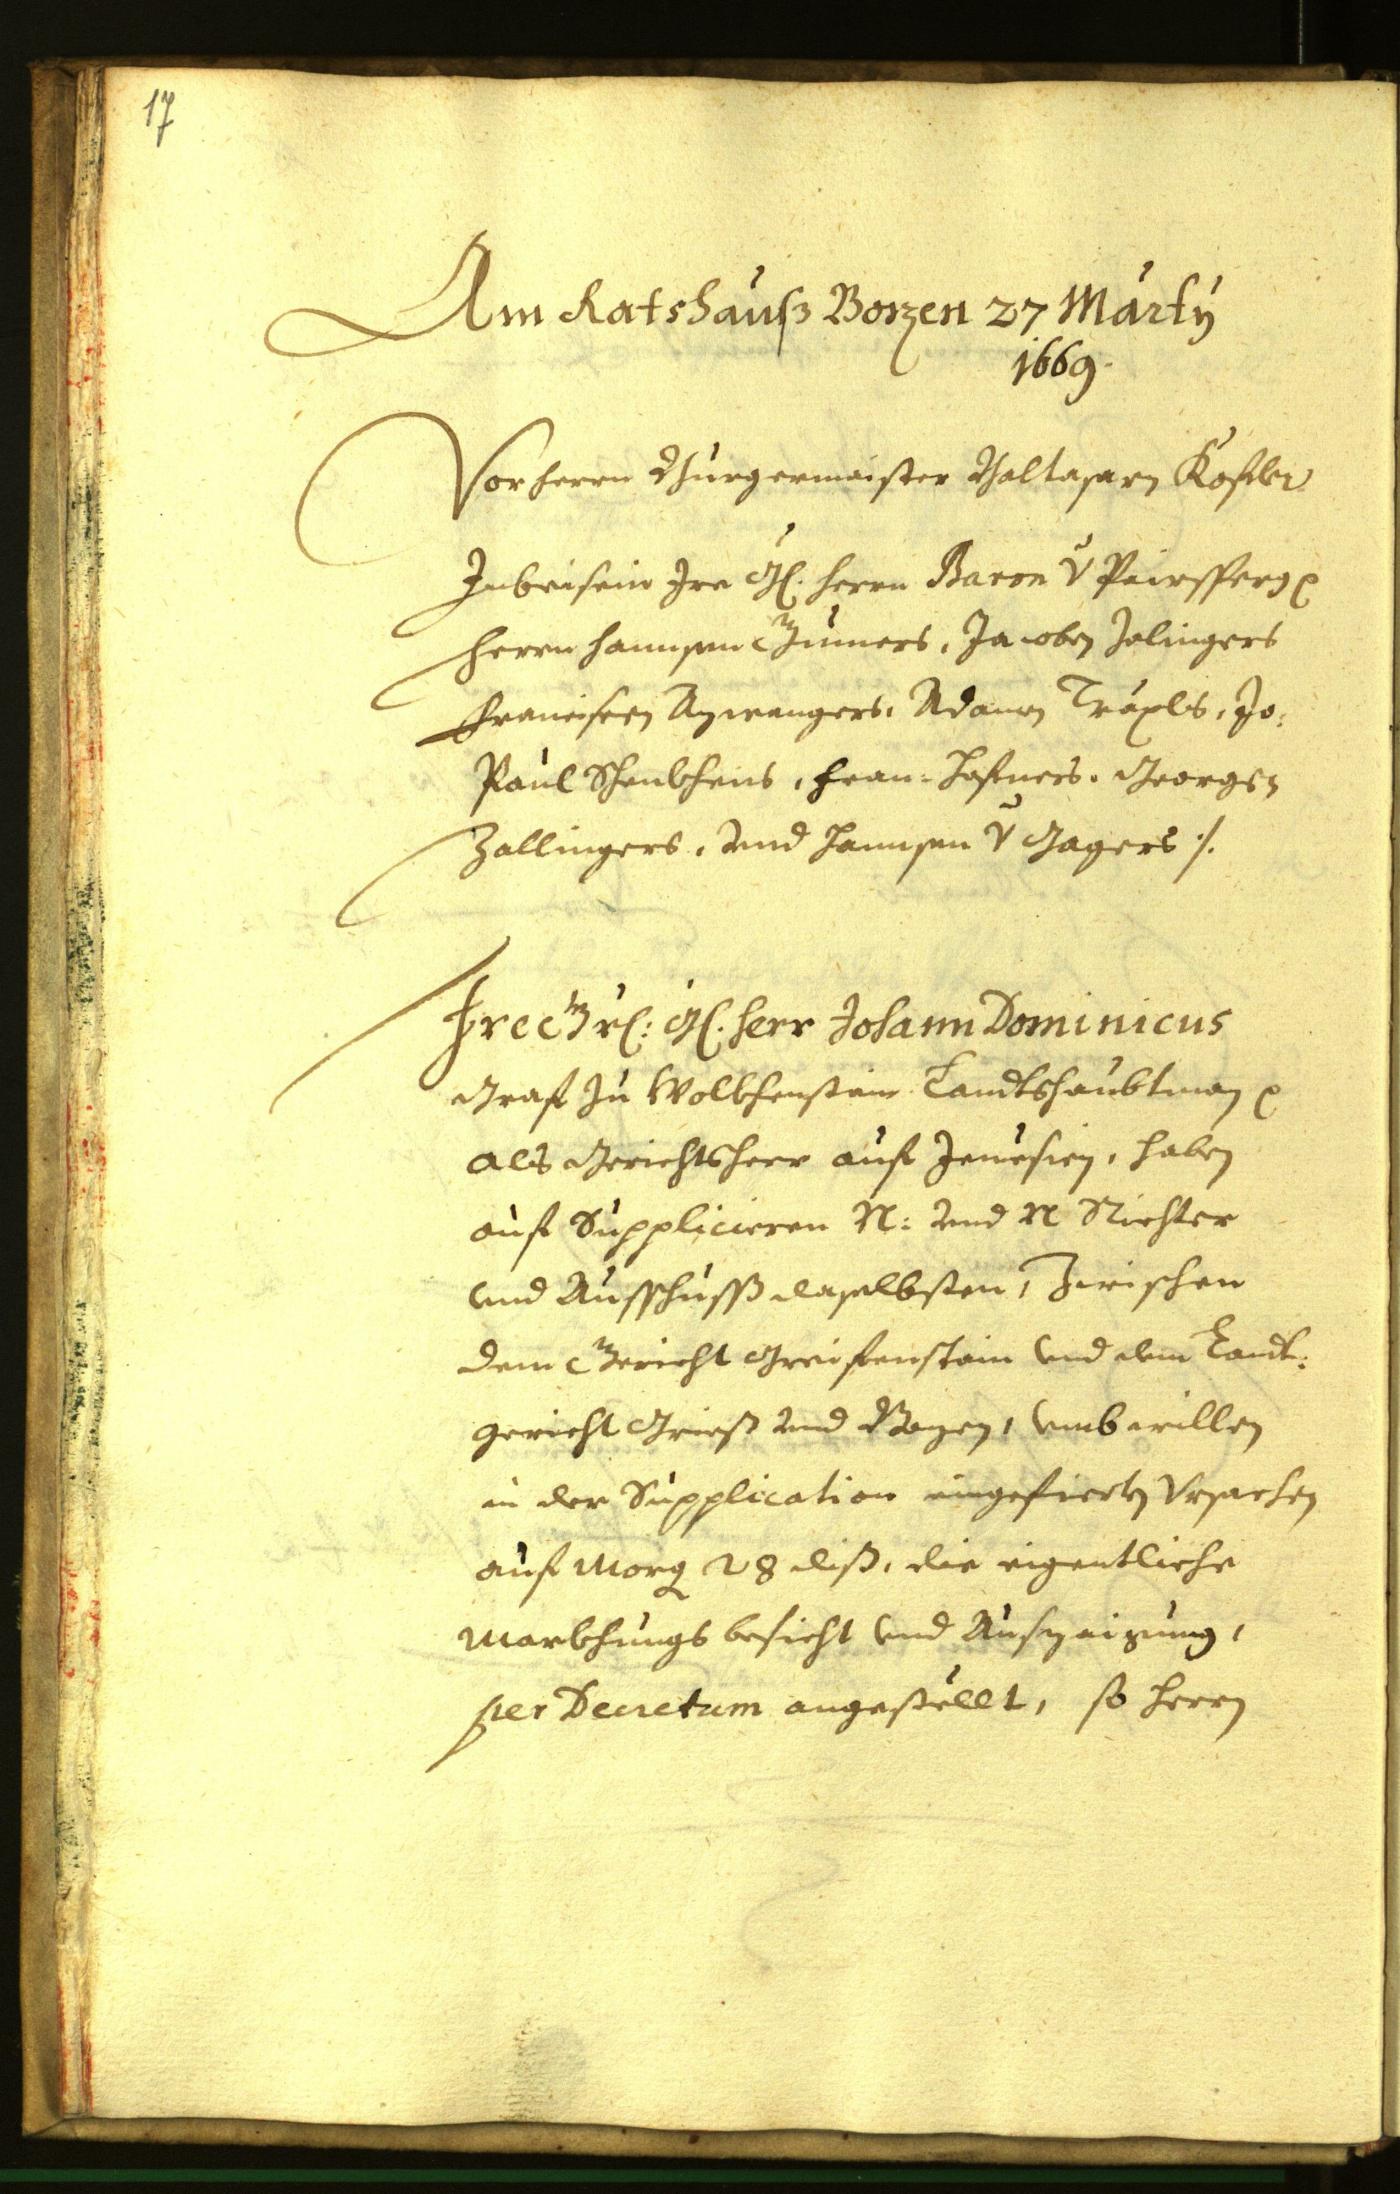 17
Am Ratshauß Bozen 27 Marty
1669.
Vor herrn Burgermaister Balthasarn Kofler
Inbeisein Ire Gl. herrn Baron v
herrn hannsen Jacoben
Francisen Adamen Jo:
Paul Schenkhens, Fran: Hafners, Georgen
Zallingers, und Hannsen v Jagers ./.
Ire Gl. herr Johann Dominicus
Graf zu Wolkhenstain Landtshaubtman
als Gerichtsherr auf Jenesien, haben
auf Supplicieren N: und N Richter
und Ausschuss daselbsten, Zwischen
dem Gericht Greifenstain und dem Landt:
gericht Grieß und Bozen, umb willen
in der Supplication eingefierten Ursachen
auf Morg 28 diß, die eigentliche
Markhungs besicht und Aufzaigung,
per Decretum angestellt, so herrn